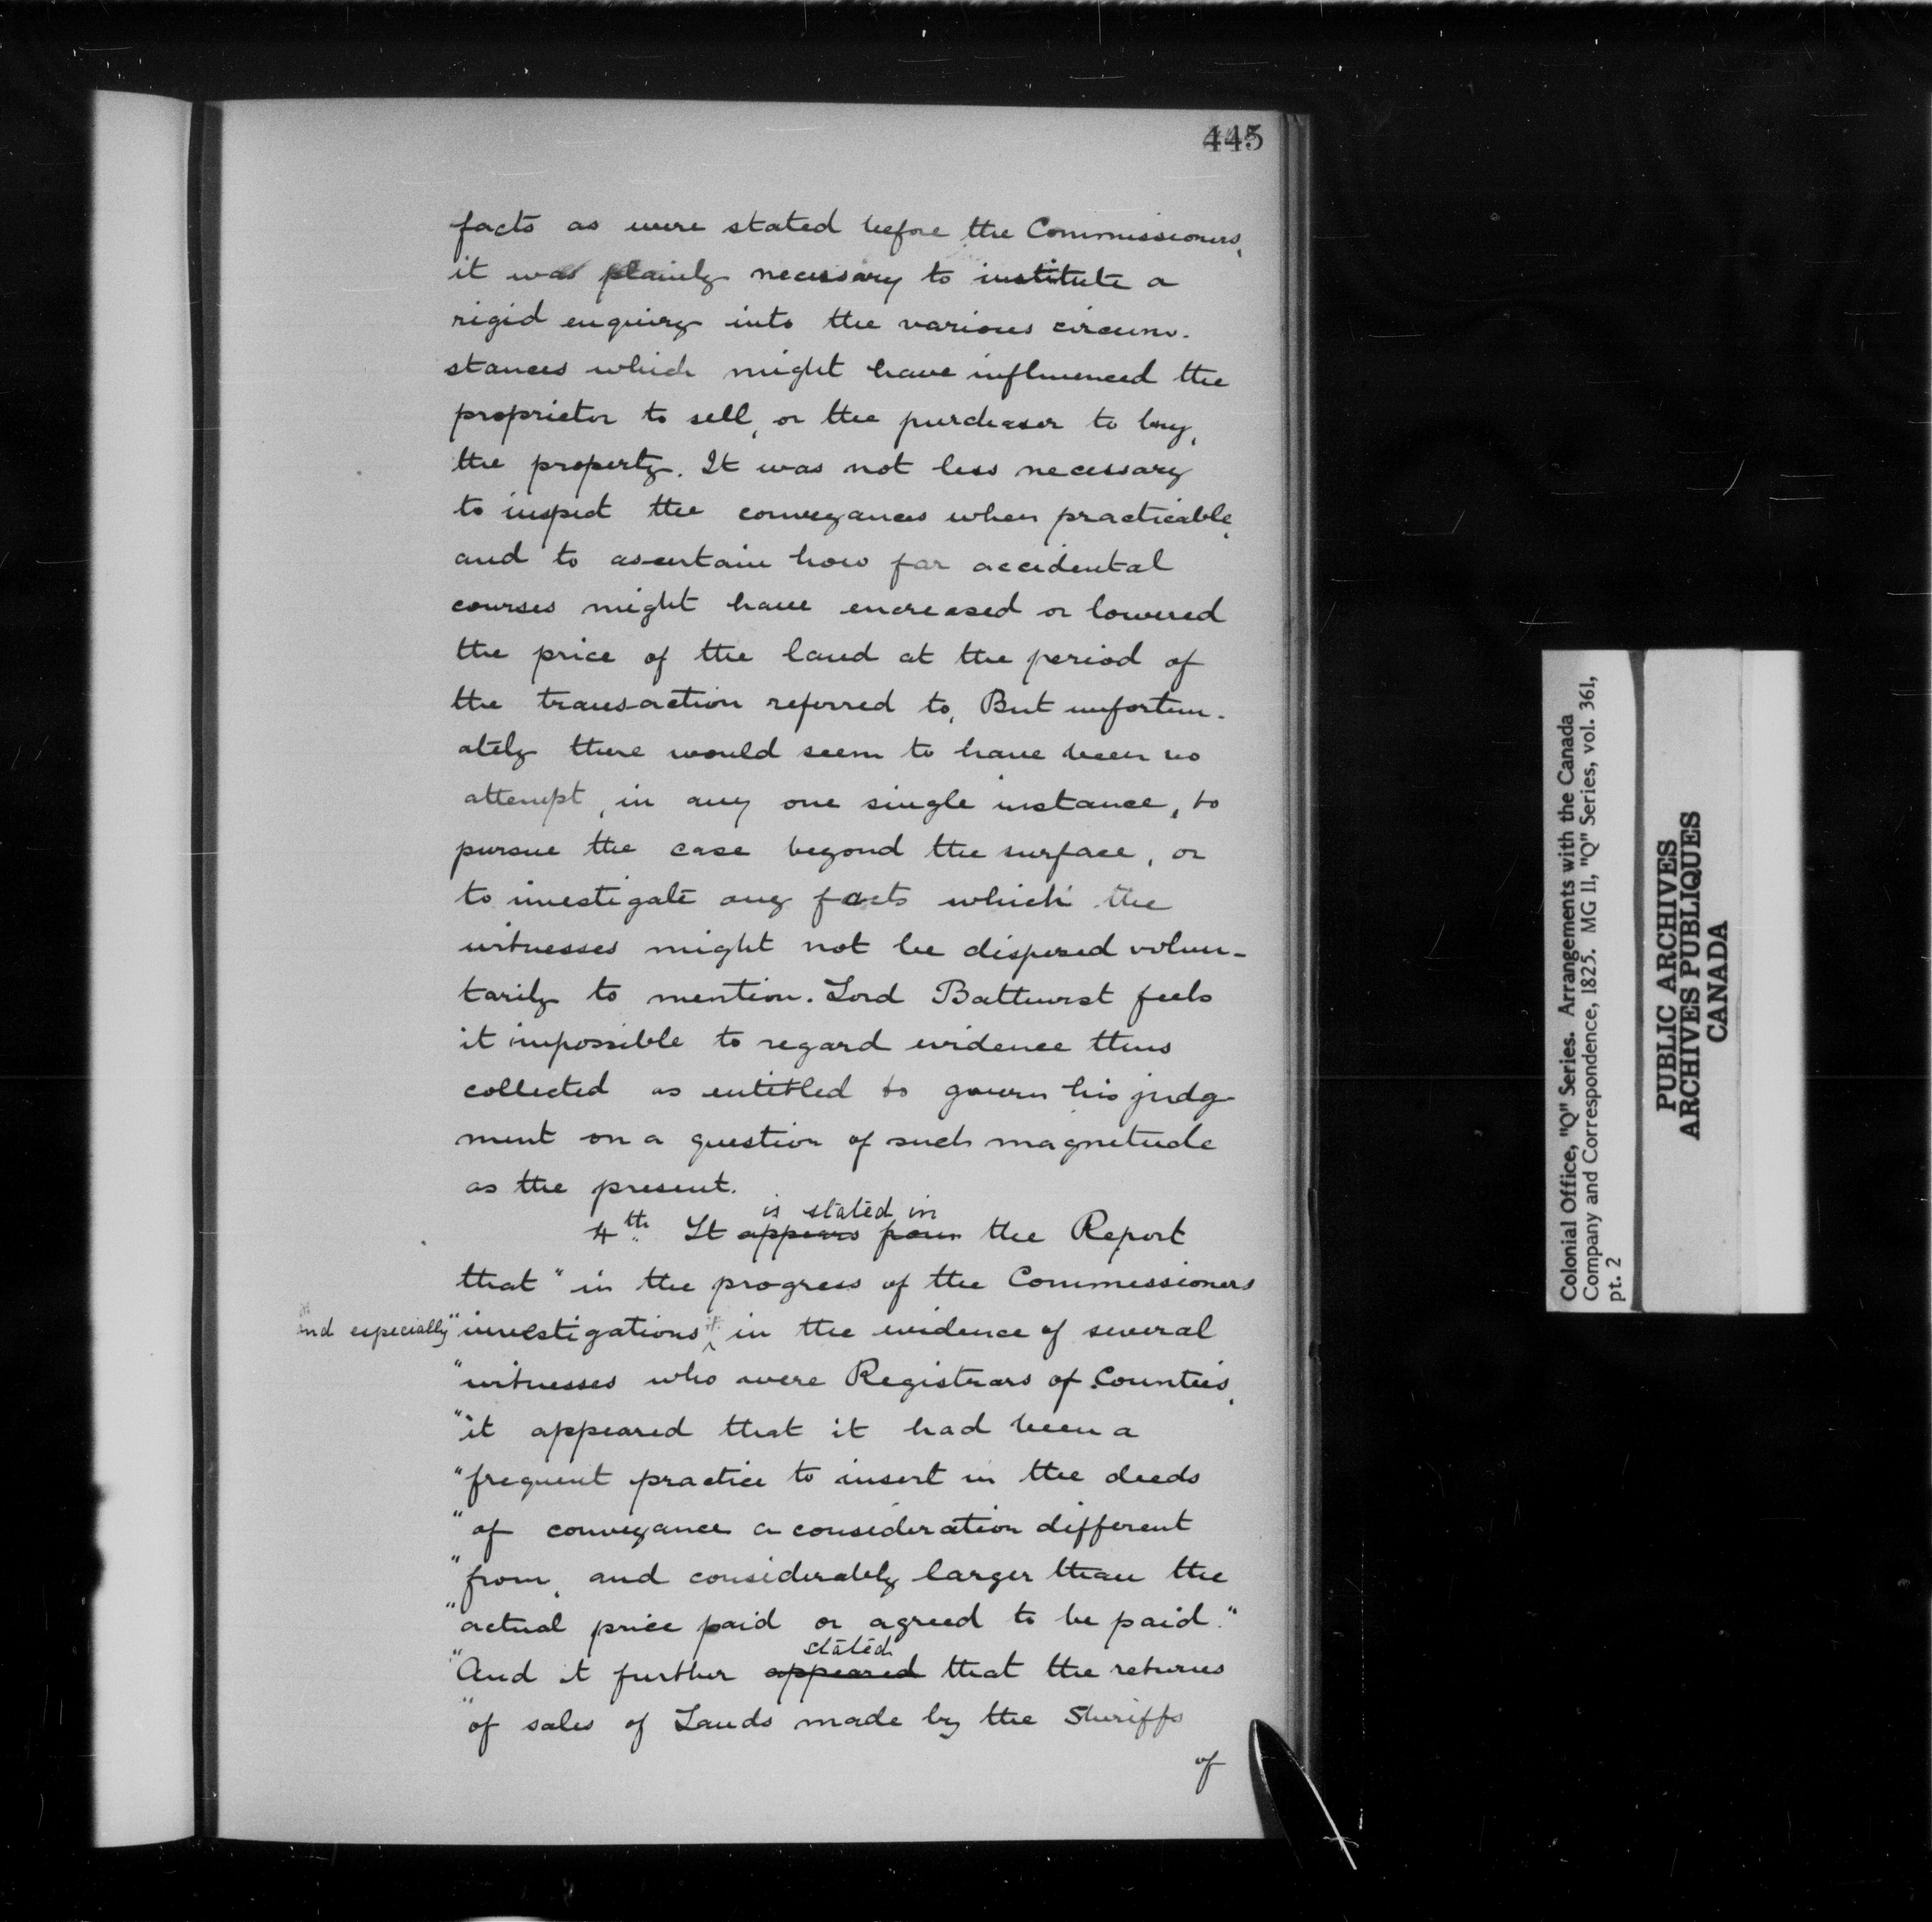 445
facts as were stated before the Commissioners,
it was plainly necessary to institute a
rigid enquiry into the various circum-
stances which might have influenced the
proprietor to sell, or the purchaser to buy,
the property. It was not less necessary
to inspect the conveyances when practicable,
and to ascertain how far accidental
courses might have encreased or lowered
the price of the land at the period of
the transaction referred to, But unfortun-
ately there would seem to have been no
attempt, in any one single instance, to
pursue the case beyond the surface, or
to investigate any facts which the
witnesses might not be disposed volun-
tarily to mention. Lord Bathurst feels
it impossible to regard evidence thus
collected as entitled to govern his judg-
ment on a question of such magnitude
as the present.
is stated in
4th. It appears from the Report
that "in the progress of the Commissioners
and especially "investigations in the evidence of several
"witnesses who were Registrars of Counties,
"it appeared that it had been a
"frequent practice to insert in the deeds
"of conveyance a consideration different
"from, and considerably larger than the
"actual price paid or agreed to be paid."
stated
"And it further appeared that the returns
"of sales of Lands made by the Sheriffs
of
Colonial Office, "Q" Series. Arrangements with the Canada
Company and Correspondence, 1825. MG 11, "Q" Series, vol. 361,
pt. 2
PUBLIC ARCHIVES
ARCHIVES PUBLIQUES
CANADA